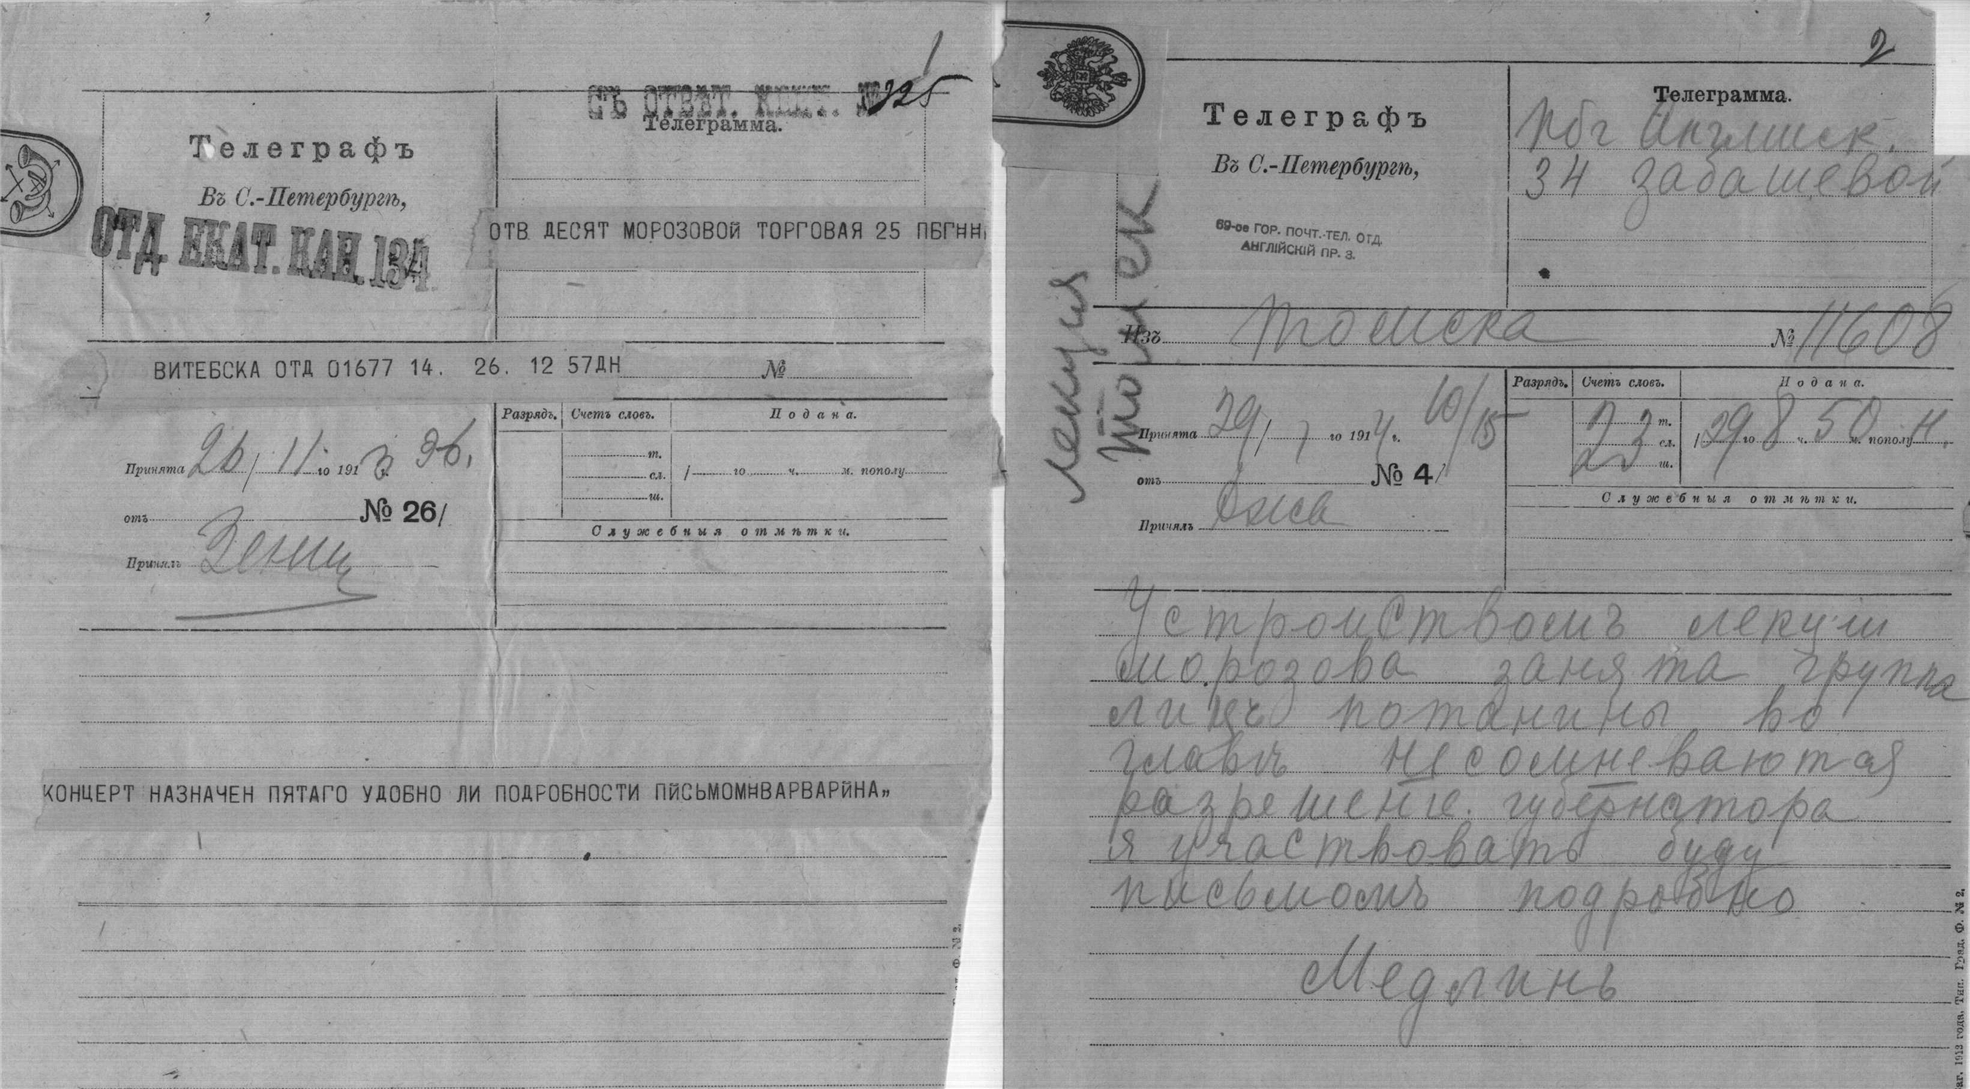 1
СЪ ОТВѢТ. КВИТ. № 225
Телеграфъ
Въ С.-Петербургѣ,
ОТД. ЕКАТ. КАН. 134.
Телеграмма.
ОТВ ДЕСЯТ МОРОЗОВОЙ ТОРГОВАЯ 25 ПБГНН
ВИТЕБСКА ОТД 01677 14. 26. 12 57ДН
№
Принята 26/11 го 1913 г.
отъ № 26/
Принялъ
Разрядъ. Счетъ словъ. Подана.
т.
сл. / го ч. м. пополу
ш.
Служебныя отмѣтки.
КОНЦЕРТ НАЗНАЧЕН ПЯТАГО УДОБНО ЛИ ПОДРОБНОСТИ ПЙСЬМОМНВАРВАРЙНА„
2
Телеграфъ
Въ С.-Петербургѣ,
69-ое ГОР. ПОЧТ.-ТЕЛ. ОТД.
АНГЛІЙСКІЙ ПР. 3.
Телеграмма.
Пбг Англииск.
34 Забашевой
лекция
Томск
Изъ Томска № 11608
Принята 29/ го 1914 г. 10/15
отъ № 4/
Принялъ
Разрядъ. Счетъ словъ. Подана.
23 т.
сл. / 29 го 8 ч. 50 м. пополу н.
23 ш.
Служебныя отмѣтки.
Устроиствомъ лекции
морозова занята группа
лицъ потанины во
главѣ несомневаются
разрешение губернатора
я участвовать буду
письмомъ подробно
Медлинъ
1913 года. Тип. Град. Ф. № 2.